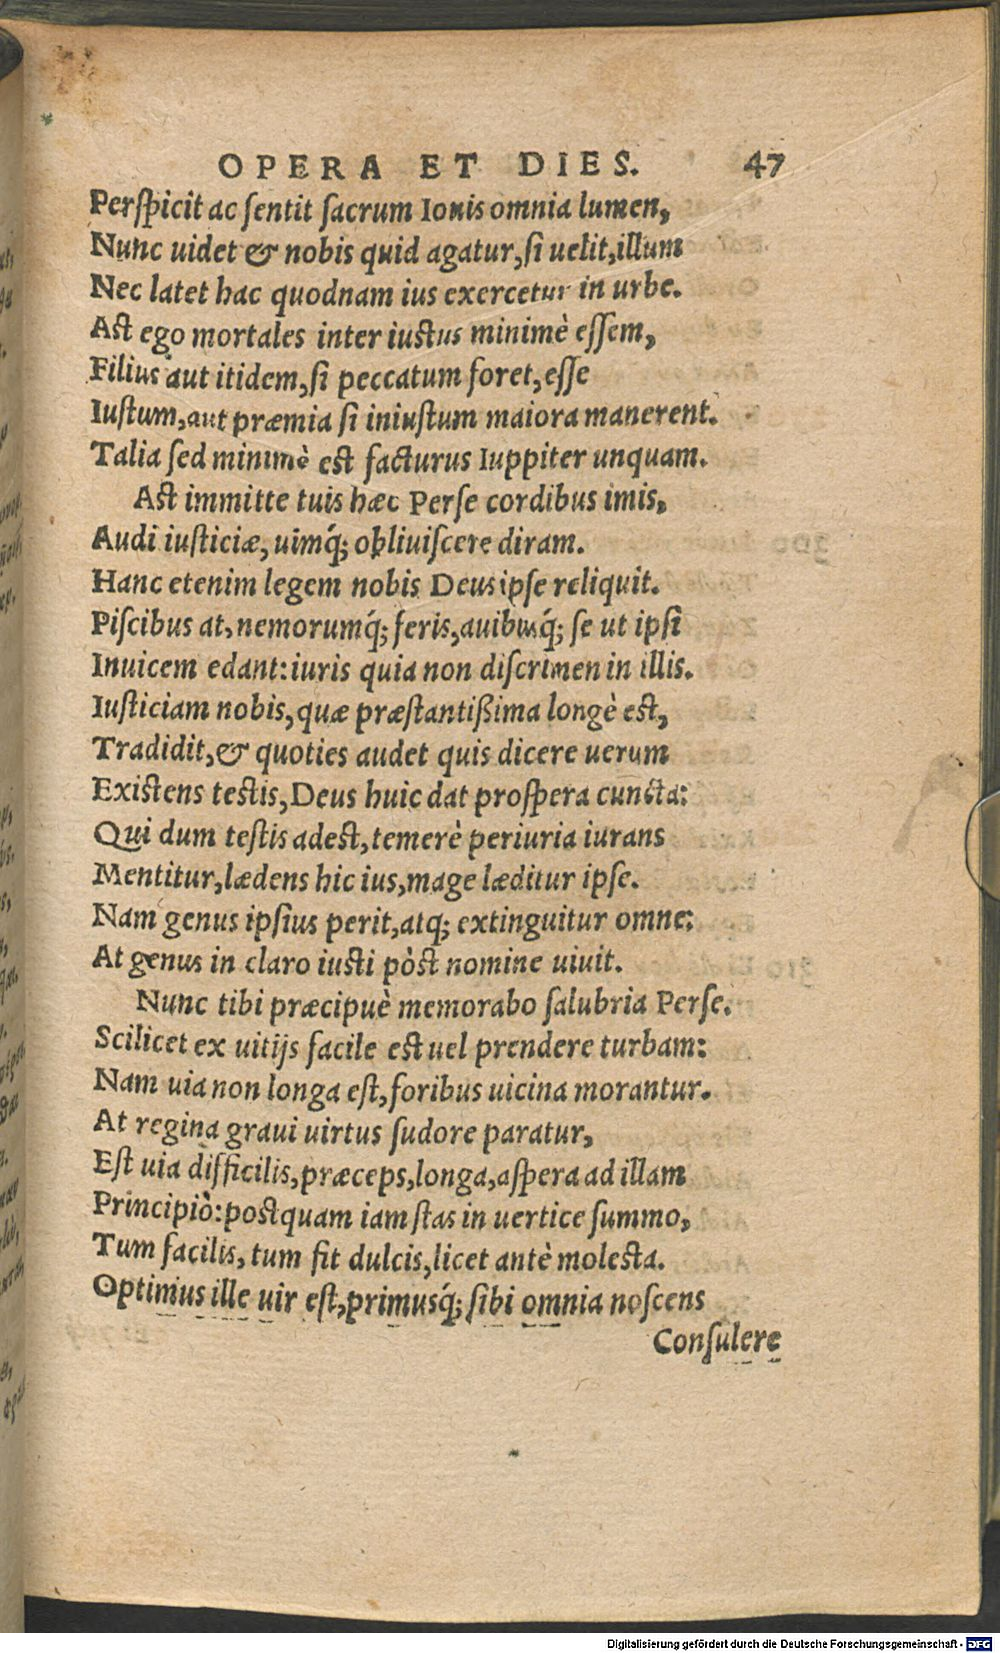 OPERA ET DIES. 47
Perſpicit ac ſentit ſacrum Iouis omnia lumen,
Nunc uidet & nobis quid agatur, ſi uelit, illum
Nec latet hac quodnam ius exercetur in urbe.
Aſt ego mortales inter iuſtus minimè eſſem,
Filius aut itidem, ſi peccatum foret, eſſe
Iuſtum, aut præmia ſi iniuſtum maiora manerent.
Talia ſed minimè eſt facturus Iuppiter unquam.
Aſt immitte tuis hæc Perſe cordibus imis,
Audi iuſticiæ, uimq́; obliuiſcere diram.
Hanc etenim legem nobis Deus ipſe reliquit.
Piſcibus at, nemorumq́; feris, auibusq́; ſe ut ipſi
Inuicem edant: iuris quia non diſcrimen in illis.
Iuſticiam nobis, quæ præſtantißima longè eſt,
Tradidit, & quoties audet quis dicere uerum
Exiſtens teſtis, Deus huic dat proſpera cuncta:
Qui dum teſtis adeſt, temerè periuria iurans
Mentitur, lædens hic ius, mage læditur ipſe.
Nam genus ipſius perit, atq; extinguitur omne:
At genus in claro iuſti pòſt nomine uiuit.
Nunc tibi præcipuè memorabo ſalubria Perſe.
Scilicet ex uitijs facile eſt uel prendere turbam:
Nam uia non longa eſt, foribus uicina morantur.
At regina graui uirtus ſudore paratur,
Eſt uia difficilis, præceps, longa, aſpera ad illam
Principiò: poſtquam iam ſtas in uertice ſummo,
Tum facilis, tum fit dulcis, licet antè moleſta.
Optimus ille uir eſt, primusq́; ſibi omnia noſcens
Conſulere
Digitalisierung gefördert durch die Deutsche Forschungsgemeinschaft - DFG